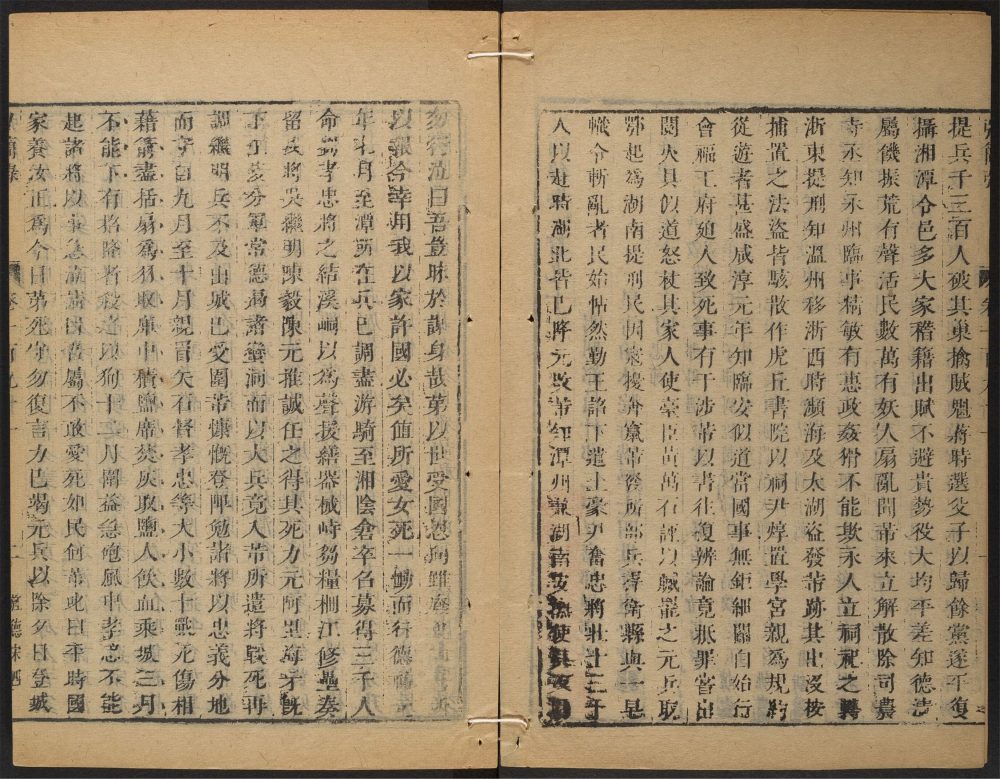 提兵千三百人破其巢擒賊魁蔣時選父子以歸餘黨遂平復
攝湘潭令邑多大家稽籍出賦不避貴勢役大均平差知德清
屬饑振荒有聲活民數萬有妖人扇亂聞芾來立解散除司農
寺丞知永州臨事精敏有惠政姦猾不能欺永人立祠祀之轉
浙東提刑知溫州移浙西時瀕海及大湖盜發芾跡其出沒按
捕置之法盜皆駭散作虎丘書院以祠尹焞置學宮親為規約
從遊者甚盛咸淳元年知臨安似道當國事無鉅細關自始行
會福王府廹人致死事有干涉芾以書往復辨論竟抵罪嘗出
閱火具似道怒杖其家人使臺臣黃萬石誣以贓罷之元兵取
鄂起為湖南提刑民因寇擾奔竄芾署所部兵得衛縣與一皂
幟令斬亂者民始帖然勤王詔下遣土豪尹奮忠將壯士三千
人以赴時湖北皆已降元改芾知潭州兼湖南安撫使其友
勿行泣曰吾豈昧於謀身哉第以世受國恩狥雖
以報今幸用我以家許國必矣值所愛女死一慟而行德祐元
年七月至潭所在兵已調盡游騎至湘陰倉卒召募得三千人
命劉孝忠將之結溪峒以為聲援繕器械峙芻糧柵江修壘奏
留戍將吳繼明陳毅陳元推誠任之得其死力元阿里海牙旣
下江陵分軍常德遏諸蠻洞而以大兵竟入芾所遣將戰死再
調繼明兵不及出城已受圍芾慷慨登陴勉諸將以忠義分地
而守自九月至十月親冒矢石督孝忠等大小數十戰死傷相
藉箭盡括扇為羽取庫中積鹽席焚灰取鹽人飲血乘城三月
不能下有招降者殺之以狥十二月圍益急砲風中孝忠不能
起諸將以事急屬不敢愛死如民何芾叱曰平時國
家養汝正為今日第死守勿復言力已竭元兵以除夕日登城